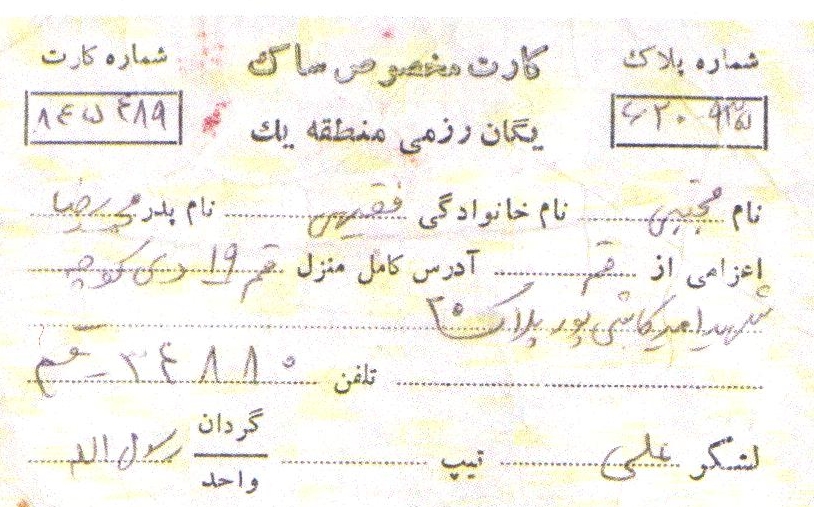 شماره پلاک کارت مخصوص ساک شماره کارت
یگان رزمی منطقه یک
نام مجتبی نام خانوادگی فقیهی نام پدر
اعزامی از قم آدرس کامل منزل قم 19 دی کوچه
شهید امیر کاشی پور پلاک ۲۵
تلفن ۳۴۸۸۰ - قم
لشکر علی تیپ گردان رسول الله
واحد